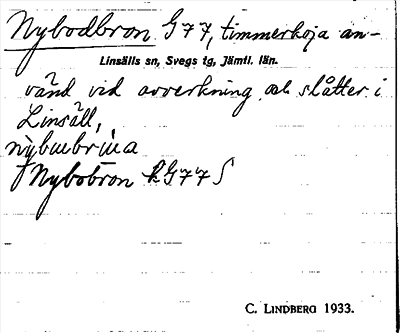 Nybodbron G77, timmerkoja an-
Linsälls sn, Svegs tg, Jämtl. län.
vänd vid avverkning och slåtter i
Linsäll,
Nybobron G77
C. LINDBERG 1933.